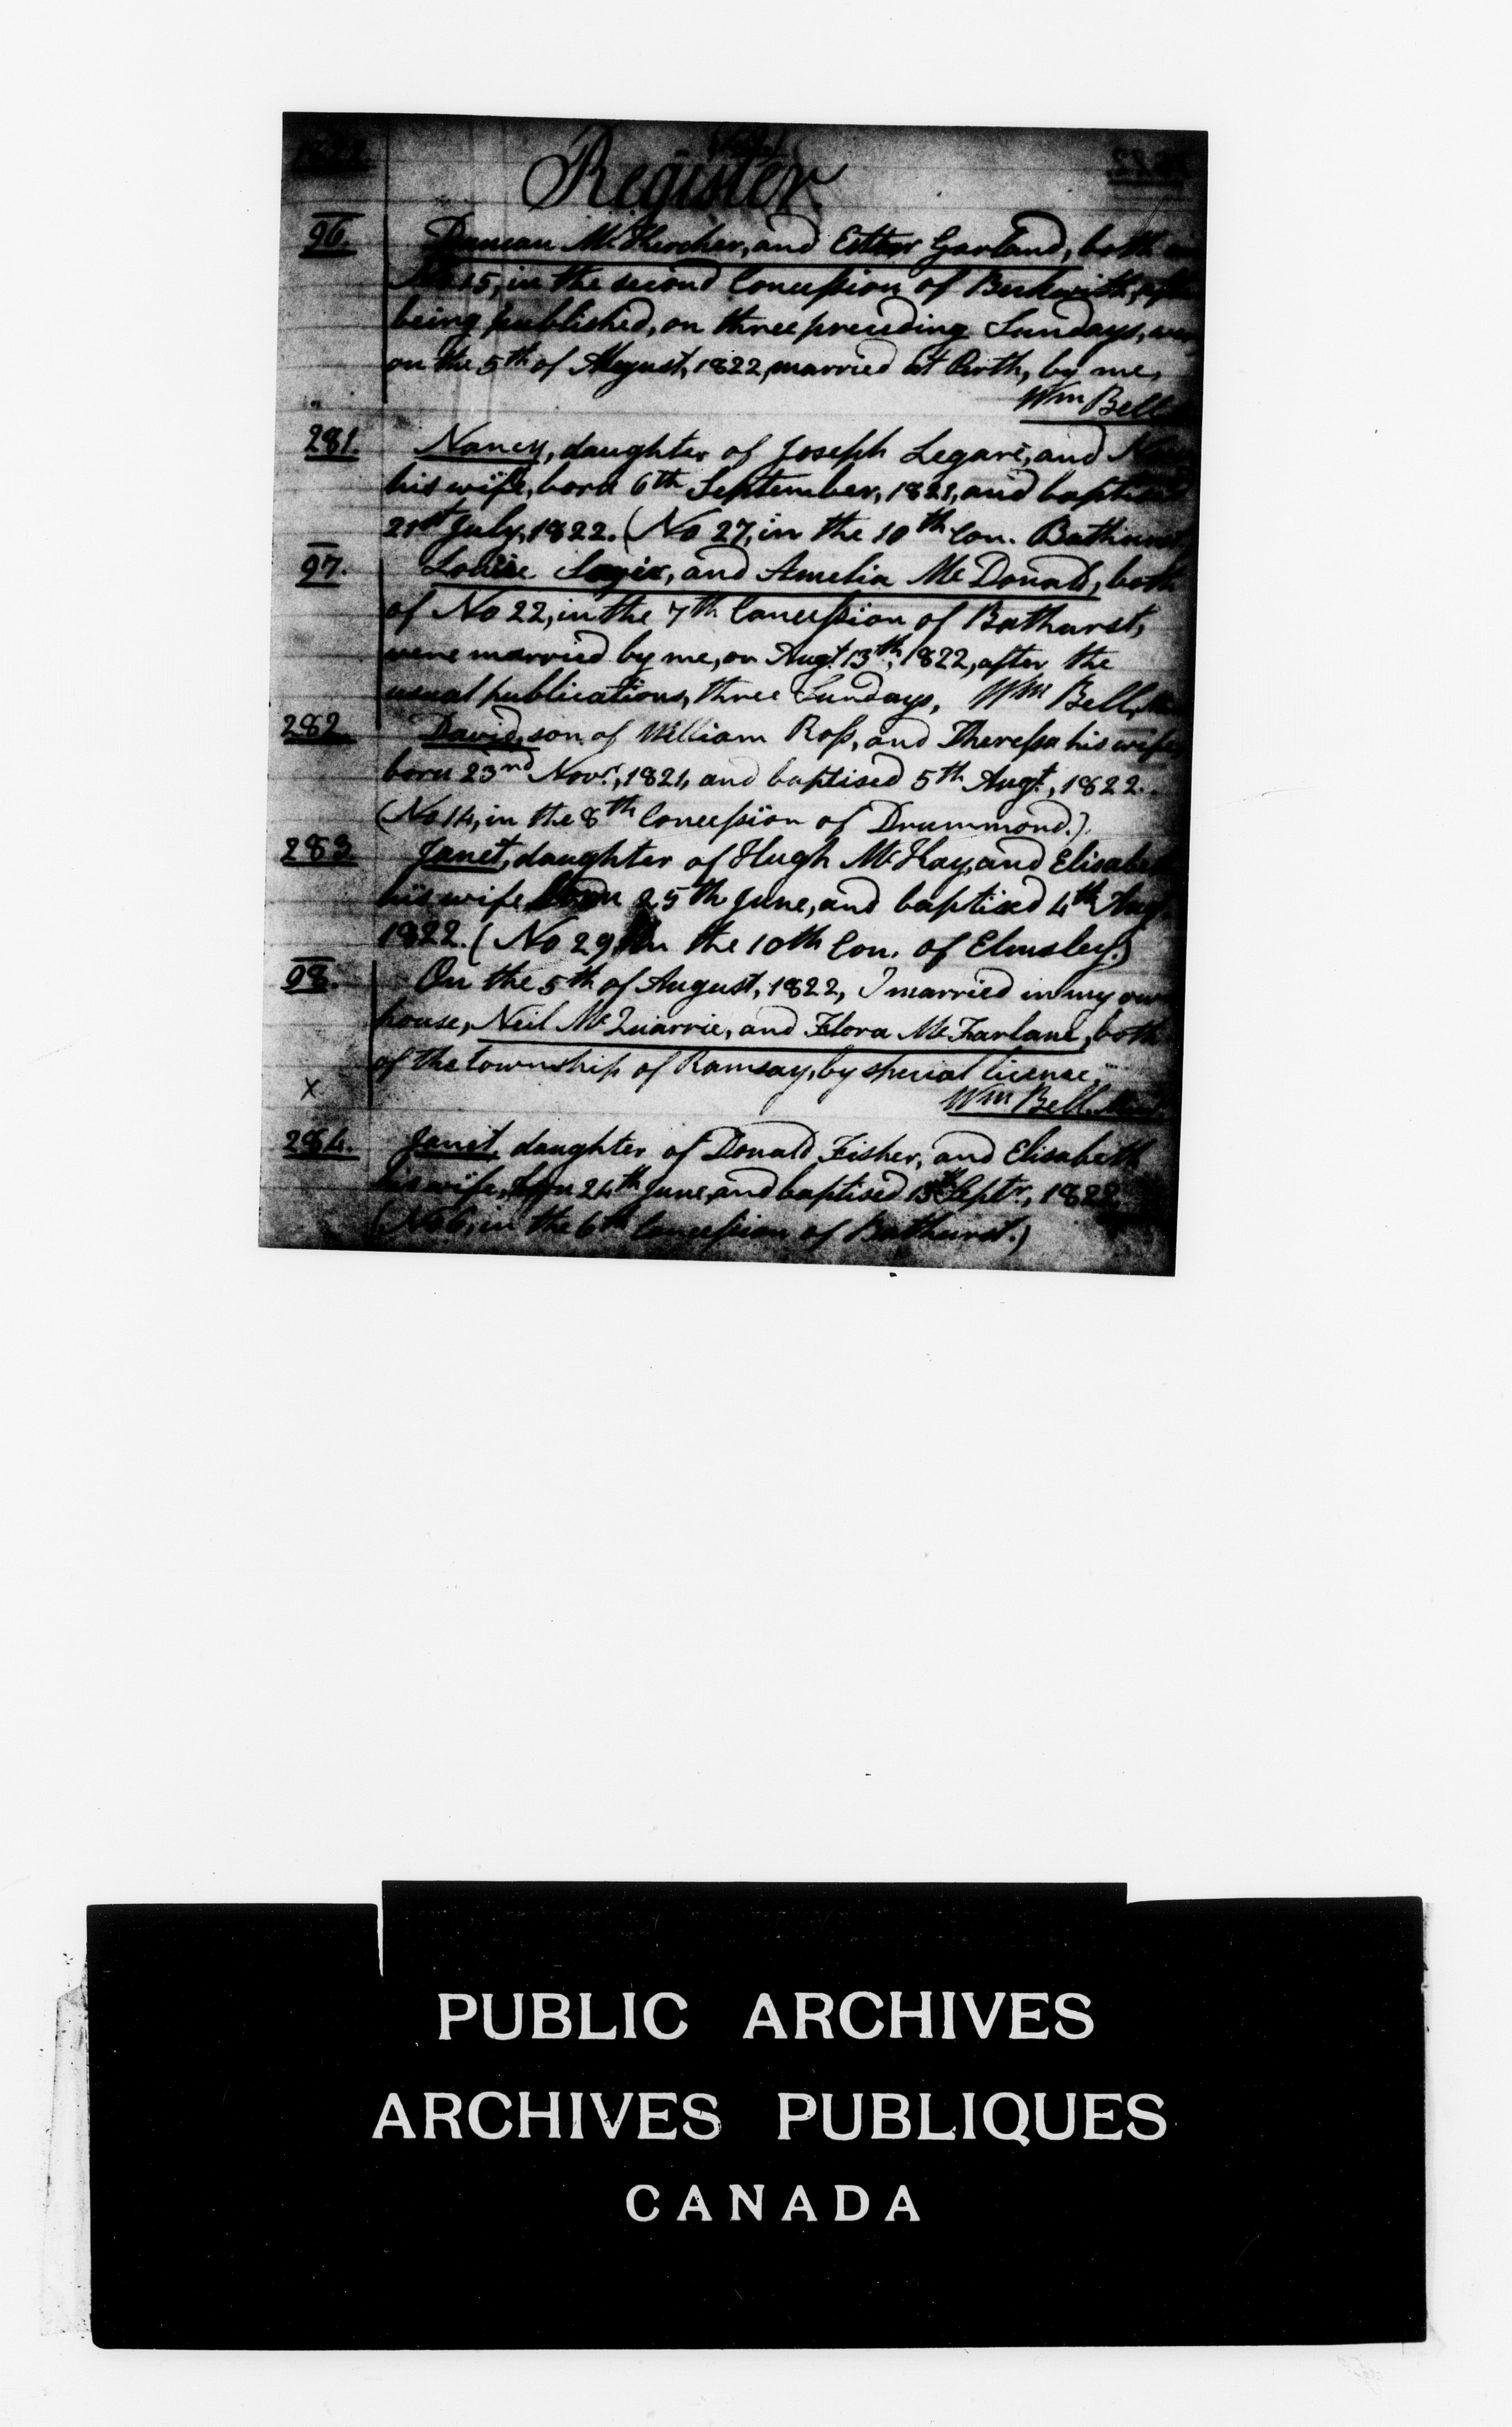 1822.
Register.
96. Duncan McKercher, and Esther Garland, both in
No 15, in the second Concession of Beckwith, after
being published, on three preceding Sundays, were
on the 5th of August, 1822, married at Perth, by me,
Wm Bell
281. Nancy, daughter of Joseph Legare, and
his wife, born 6th September, 1821, and baptised
21st July, 1822. (No 27, in the 10th Con. Bathurst
97. Louise, and Amelia McDonald, both
of No 22, in the 7th Concession of Bathurst,
were married by me, on Augt 13th, 1822, after the
usual publications, three Sundays, Wm Bell,
282. David, son of William Ross, and Theressa his wife,
born 23rd Novr., 1821, and baptised 5th Augt., 1822.
(No 14, in the 8th Concession of Drummond.)
283. Janet, daughter of Hugh McKay, and Elisabeth
his wife born 25th June, and baptised 4th Augt
1822. (No 29, in the 10th Con. of Elmsley.)
98. On the 5th of August, 1822, I married in my own
house, Neil McQuarrie, and Flora McFarlane, both
of the township of Ramsay, by special license,
X
Wm Bell, Minr.
284. Janet, daughter of Donald Fisher, and Elisabeth
his wife, born 24th June, and baptised 15th Septr., 1822
(No 6, in the 6th Concession of Bathurst.)
PUBLIC ARCHIVES
ARCHIVES PUBLIQUES
CANADA